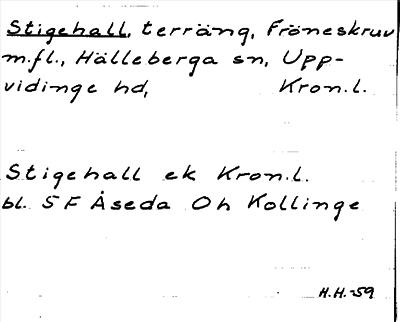 Stigehall, terräng, Fröneskruv
m.fl., Hälleberga sn, Upp-
vidinge hd, Kron.l.
Stigehall ek Kron.l.
bl. 5 F Åseda Oh Kollinge
H.H.-59